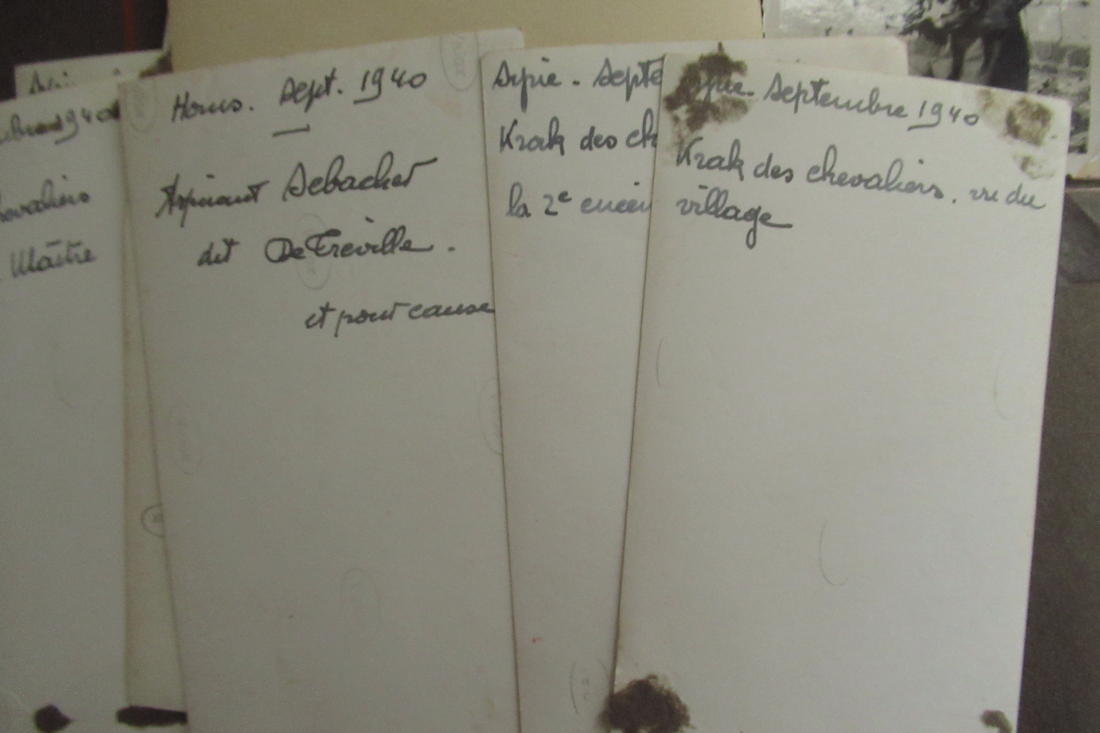 1940
hevaliers
Maître
Homs. Sept. 1940
Aspirant Debacker
dit De Tréville.
et pour cause
Syrie - Septe
Krak des ch
la 2e encein
Syrie. Septembre 1940
Krak des chevaliers. vu du
village